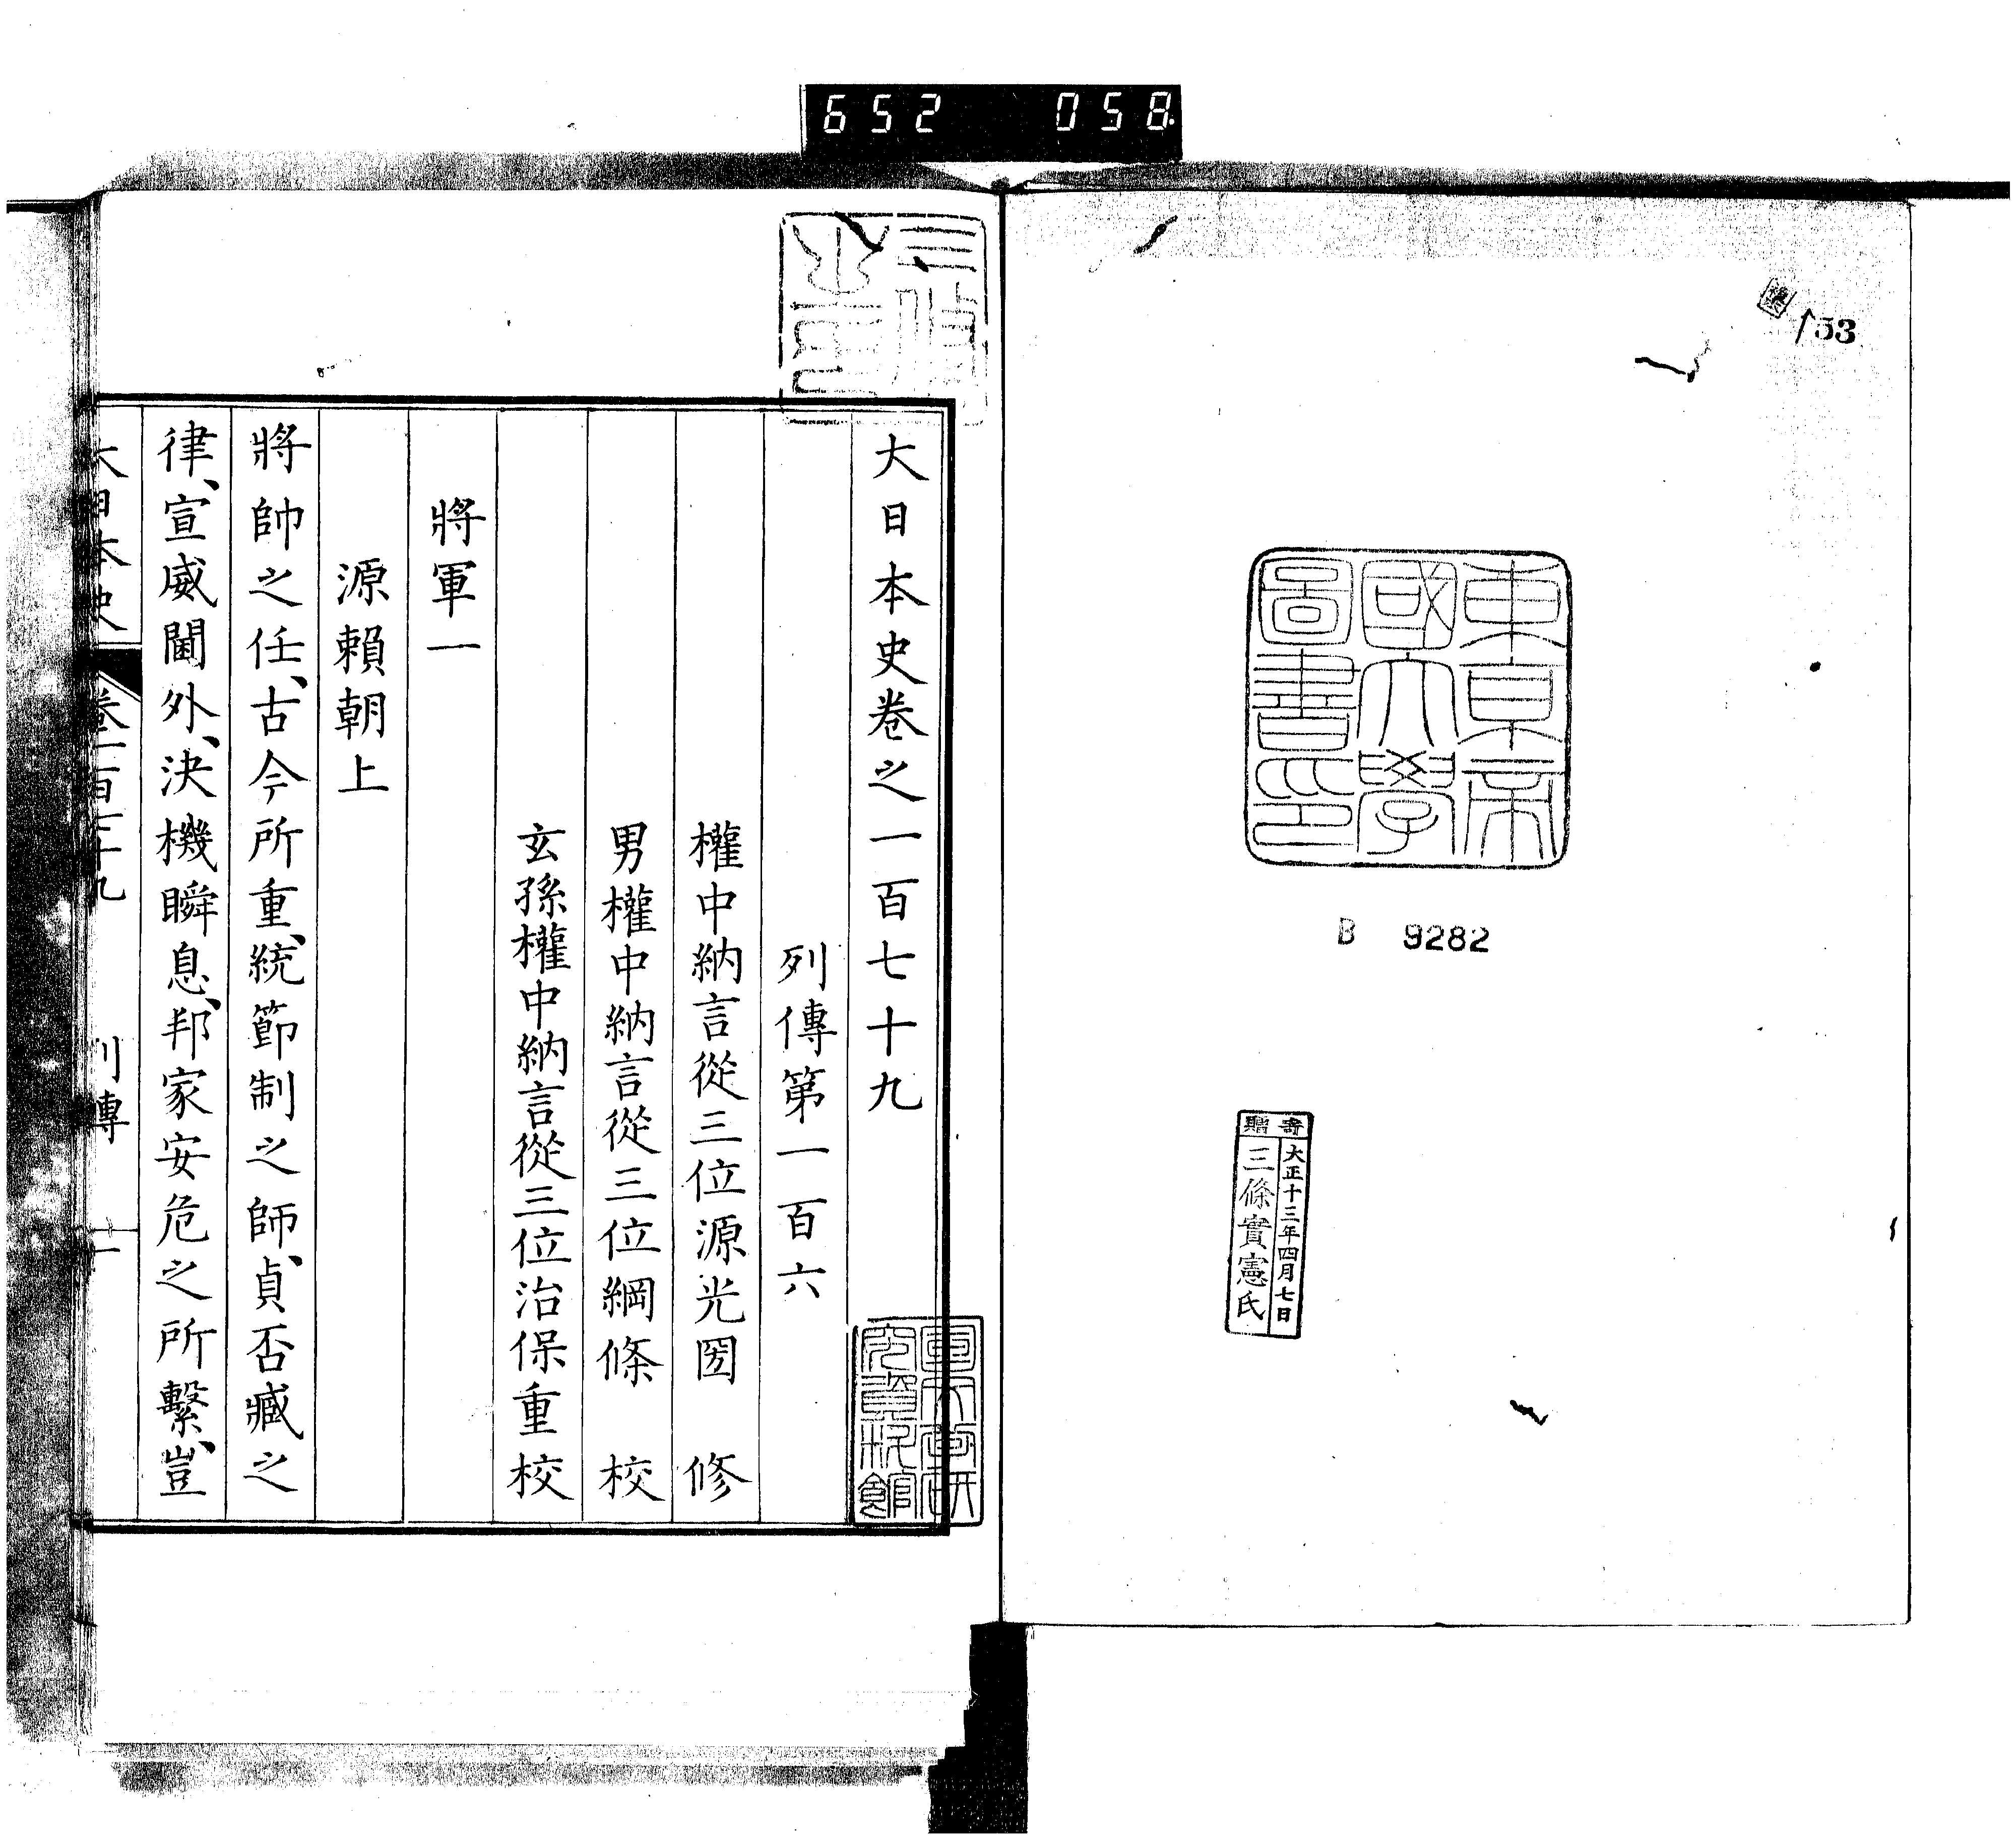 652 058
153
東京帝
國大學
圖書印
B 9282
寄贈
大正十三年四月七日
三條實憲氏
大日本史卷之一百七十九
列傳第一百六
權中納言從三位源光圀 修
男權中納言從三位綱條 校
玄孫權中納言從三位治保重校
將軍一
源賴朝上
將帥之任、古今所重、統節制之師、貞否臧之
律、宣威閫外、決機瞬息、邦家安危之所繫、豈
大日本史 卷一百七十九 列傳 一